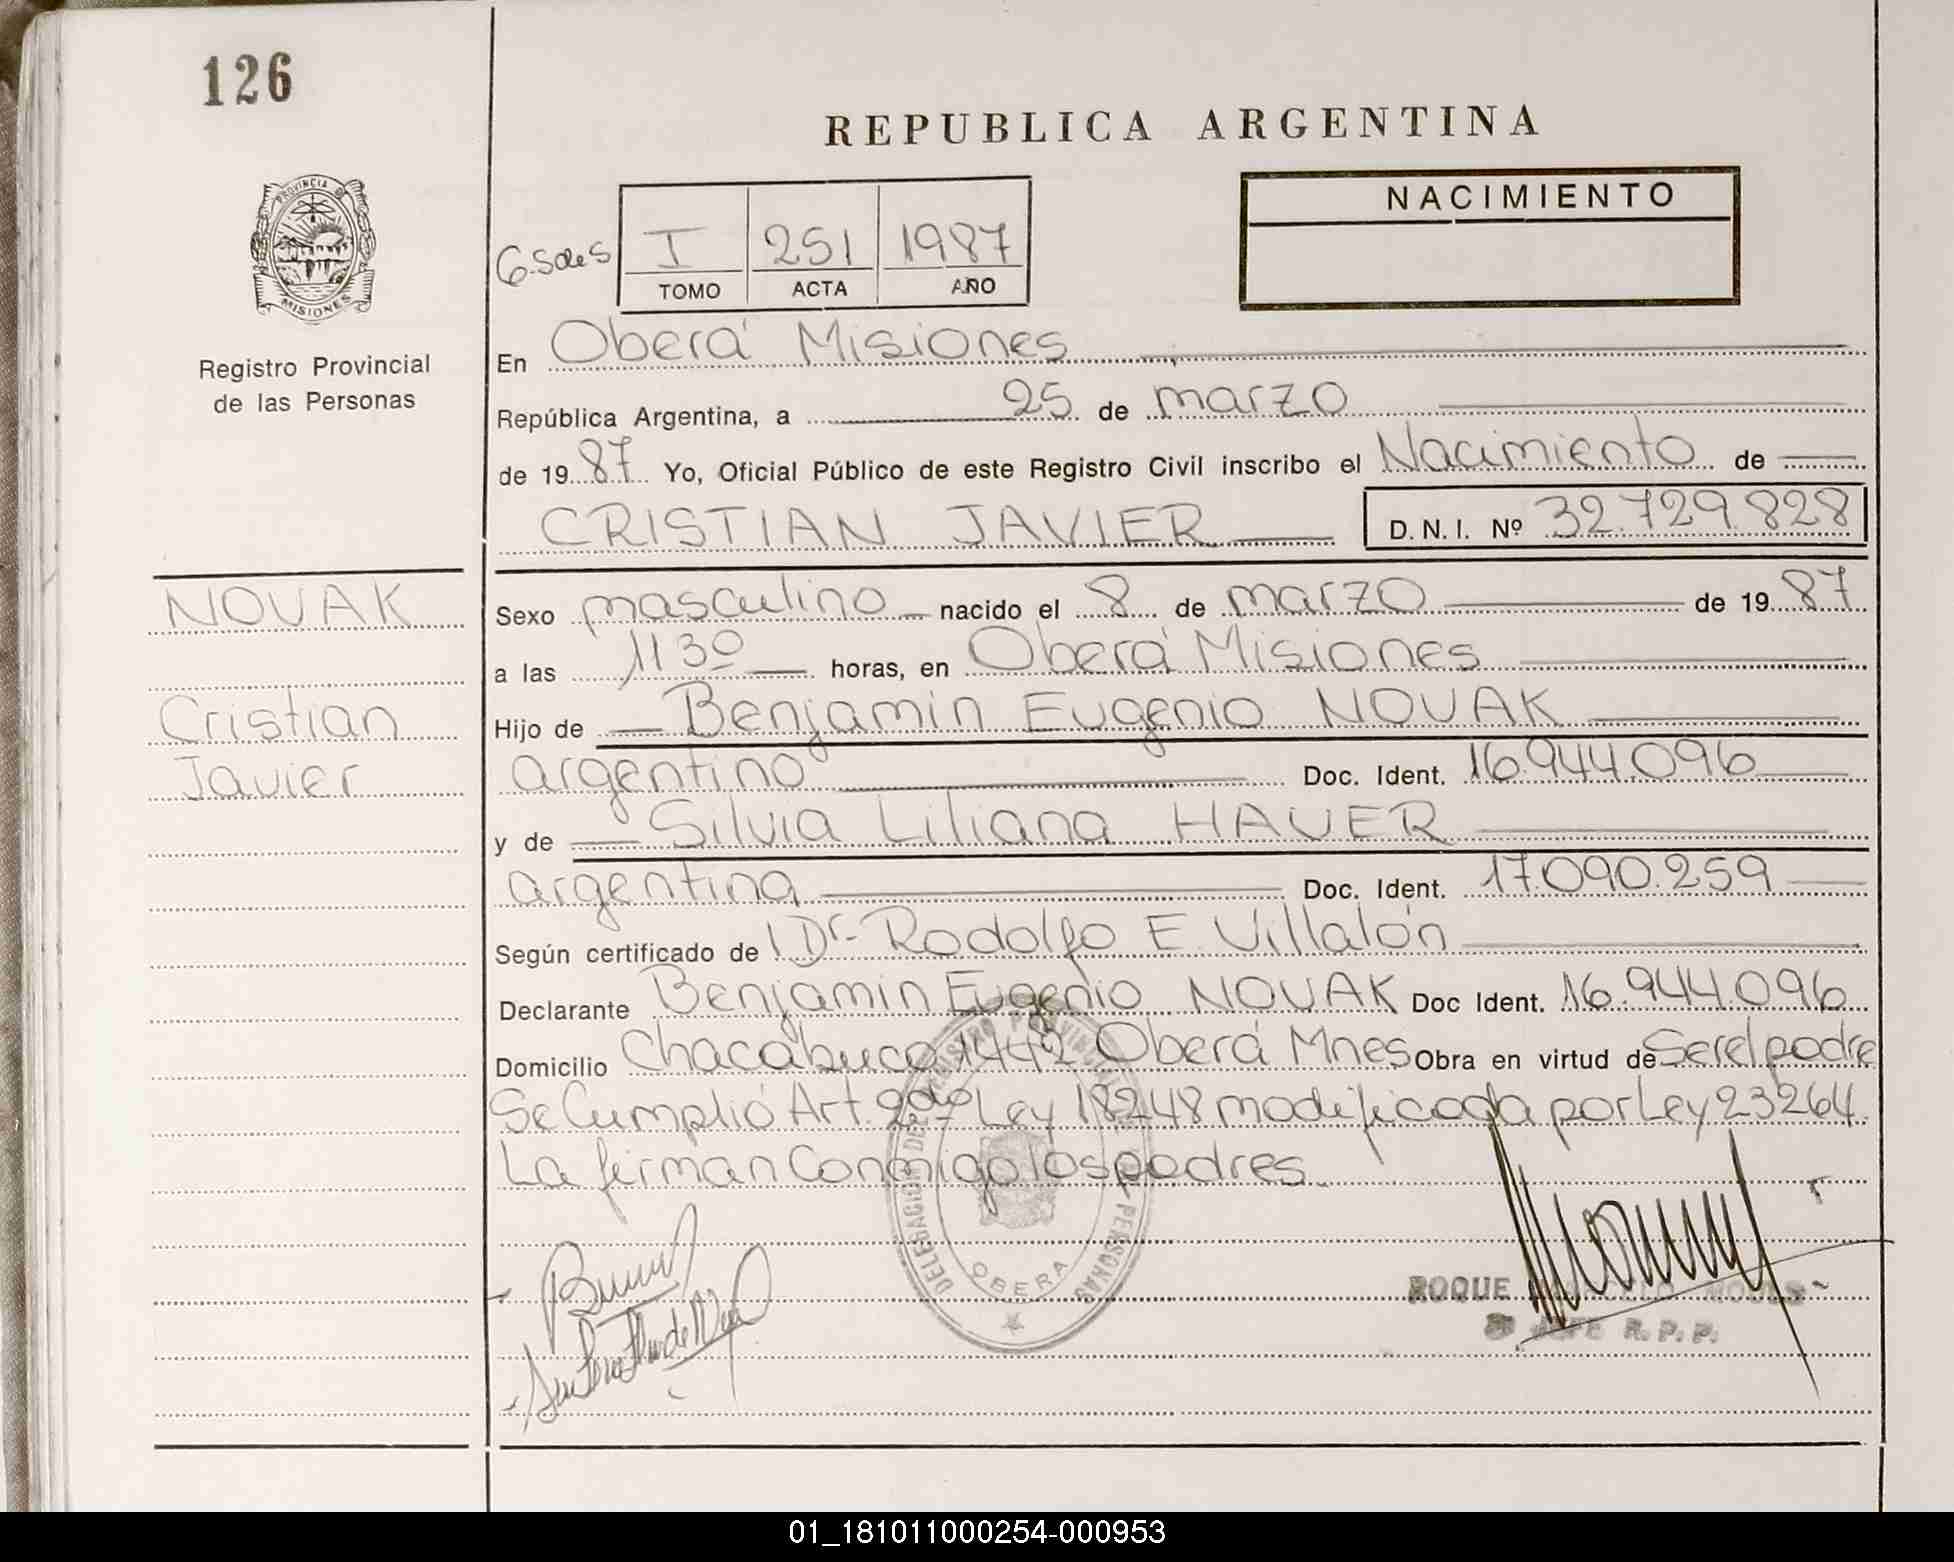 126
REPUBLICA ARGENTINA
PROVINCIA DE
MISIONES
Registro Provincial
de las Personas
I 251 1987
TOMO ACTA AÑO
NACIMIENTO
En Oberá Misiones
República Argentina, a 25 de marzo
de 1987 Yo, Oficial Público de este Registro Civil inscribo el Nacimiento de
CRISTIAN JAVIER D.N.I. Nº 32.729.828
NOVAK
Cristian
Javier
Sexo masculino nacido el 8 de marzo de 1987
a las 11 30 horas, en Oberá Misiones
Hijo de Benjamin Eugenio NOVAK
argentino Doc. Ident. 16.944.096
y de Silvia Liliana HAUER
argentina Doc. Ident. 17.090.259
Según certificado de Dr. Rodolfo E. Villalón
Declarante Benjamin Eugenio NOVAK Doc Ident. 16.944.096
Domicilio Chacabuco 1442 Oberá Mnes Obra en virtud de Ser el padre
Se Cumplió Art. 2do Ley 18248 modificada por Ley 23264.
La firman Conmigo los padres.
DELEGACION DEL REGISTRO PROVINCIAL DE LAS PERSONAS
OBERA
ROQUE
JEFE R.P.P.
01_181011000254-000953